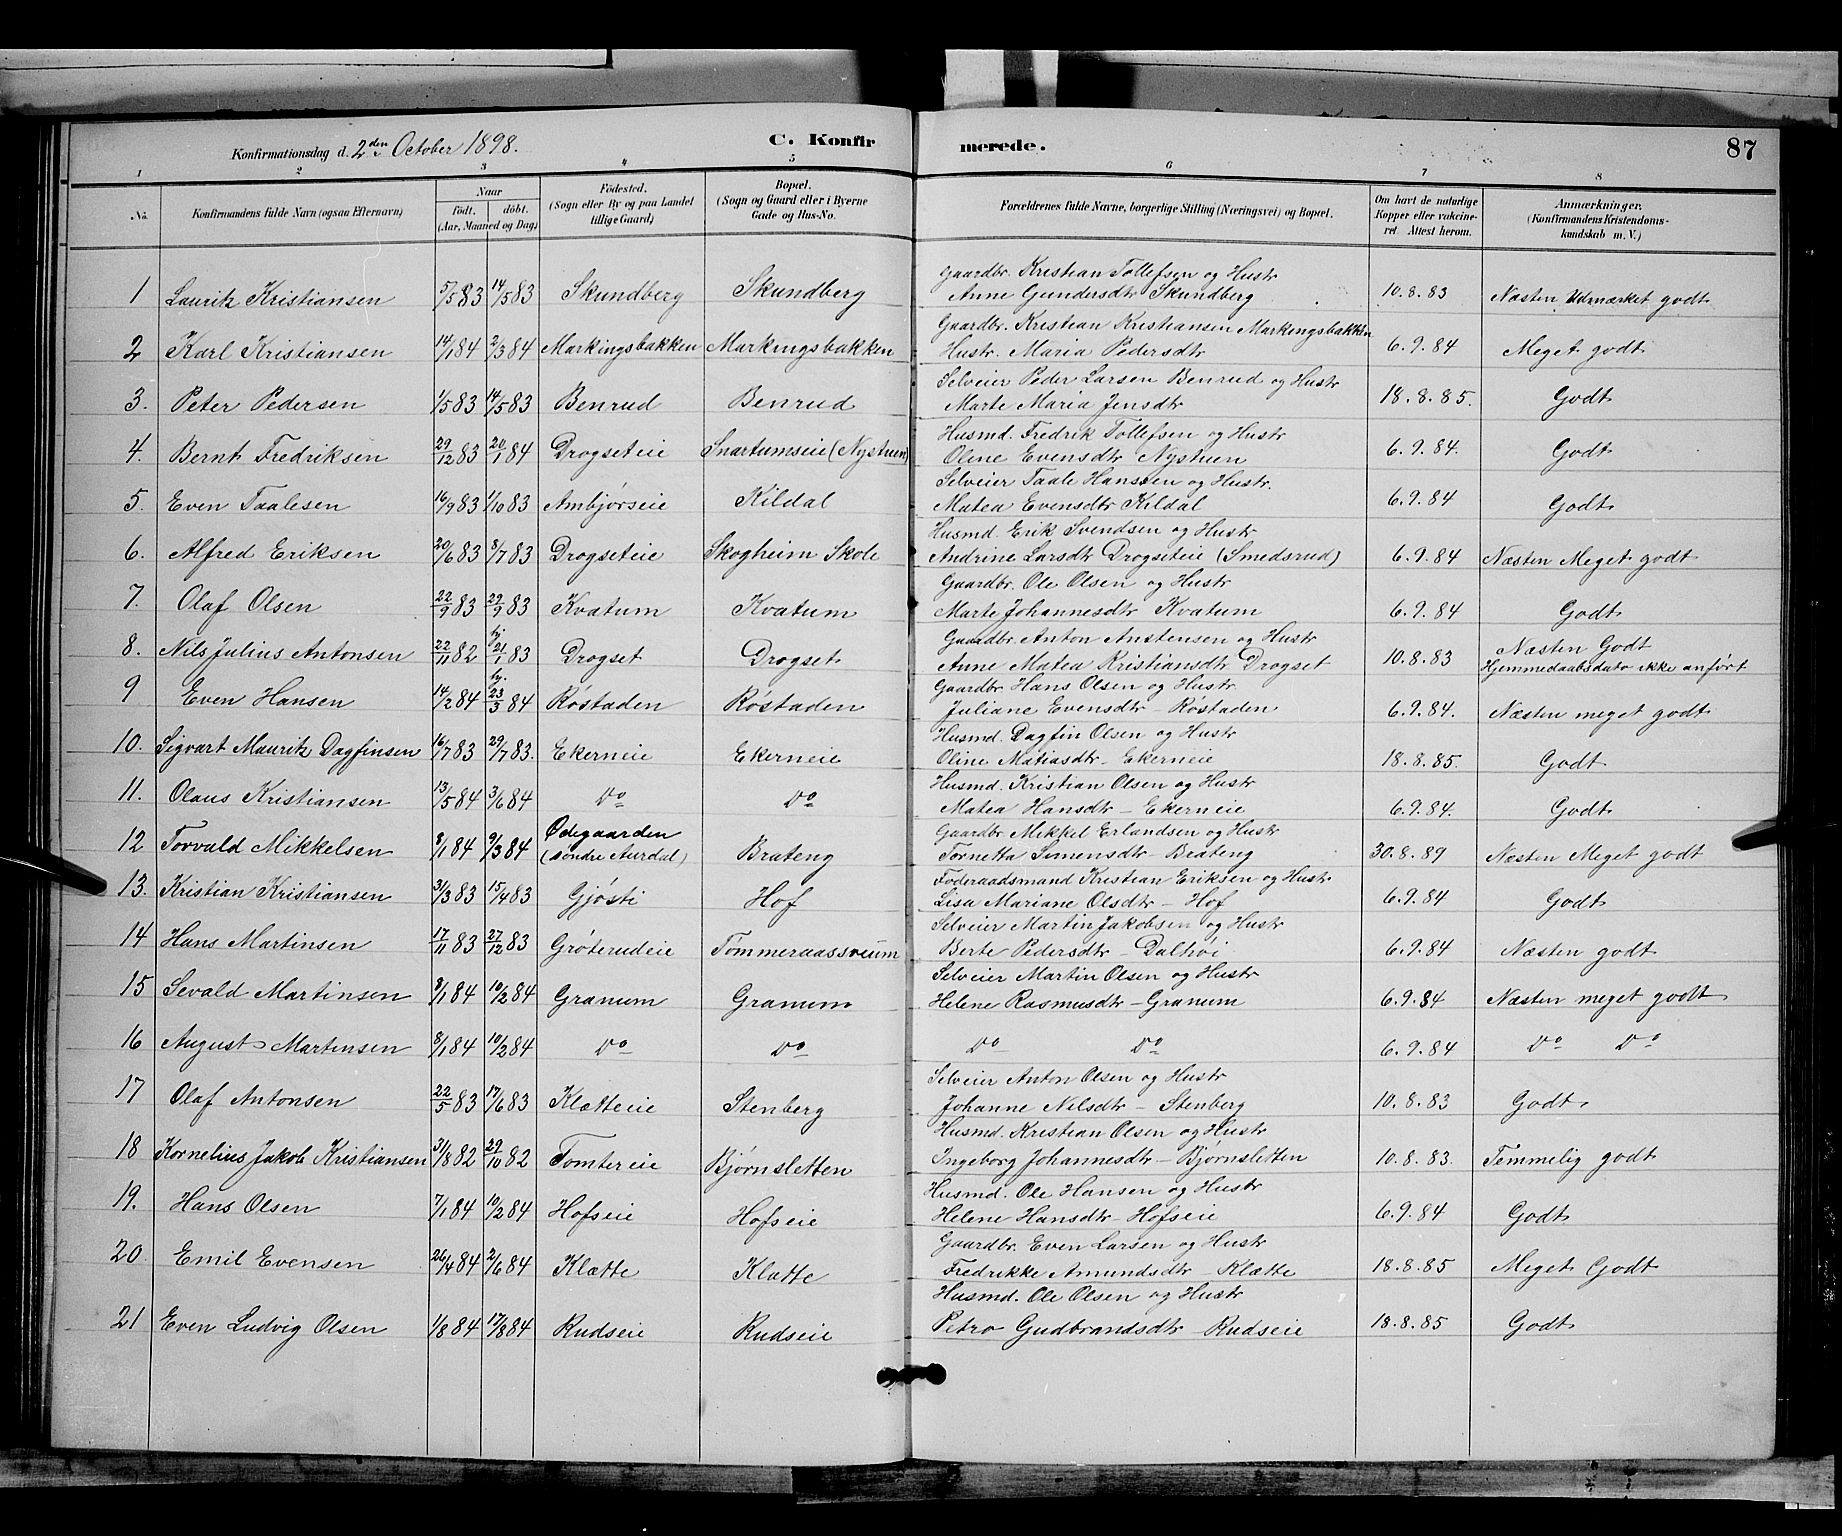 Konfirmationsdag d. 2den October 1898. C. Konfirmerede. 87
1 2 3 4 5 6 7 8
No. Konfirmandens fulde Navn (ogsaa Efternavn) Naar födt. döbt. (Aar, Maaned og Dag) Födested. (Sogn eller By og paa Landet tillige Gaard) Bopæl. (Sogn og Gaard eller i Byerne Gade og Hus-No. Forældrenes fulde Navne, borgerlige Stilling (Næringsvei) og Bopæl. Om havt de naturlige Kopper eller vakcineret. Attest herom. Anmærkninger. (Konfirmandens Kristendomskundskab m. V.)
1 Laurik Kristiansen 5/5 83 14/5 83 Skundberg Skundberg Gaardbr. Kristian Tollefsen og Hustr
Anne Gundersdtr Skundberg 10.8.83 Næsten Udmærket godt
2 Karl Kristiansen 14/1 84 2/3 84 Markingsbakken Markingsbakken Gaardbr. Kristian Kristiansen Markingsbakken
Hustr. Maria Pedersdtr 6.9.84 Meget godt
3. Peter Pedersen 1/5 83 14/5 83 Benrud Benrud Selveier Peder Larsen Benrud og Hustr
Marte Maria Jensdtr 18.8.85. Godt
4. Bernt Fredriksen 29/12 83 20/1 84 Drogseteie Snartumseie (Nystuen) Husmd. Fredrik Tollefsen og Hustr
Oline Evensdtr Nystuen 6.9.84. Godt
5. Even Taalesen 16/9 83 1/10 83 Ambjørseie Kildal Selveier Taale Hansen og Hustr.
Matea Evensdtr Kildal 6.9.84 Godt
6. Alfred Eriksen 20/6 83 8/7 83 Drogseteie Skogheim Skole Husmd. Erik Svendsen og Hustr
Andrine Larsdtr Drogseteie (Smedsrud) 6.9.84 Næsten Meget godt
7. Olaf Olsen 22/9 83 29/9 83 Kvatum Kvatum Gaardbr. Ole Olsen og Hustr
Marte Johannesdtr Kvatum 6.9.84 Godt
8. Nils Julius Antonsen 22/11 82 hj. 21/1 83 Drogset Drogset Gaardbr Anton Anstensen og Hustr
Anne Matea Kristiansdtr Drogset 10.8.83 Næsten Godt
Hjemmedaabsdato ikke anført
9 Even Hansen 14/2 84 hj. 23/3 84 Røstaden Røstaden Gaardbr. Hans Olsen og Hustr
Juliane Evensdtr – Røstaden 6.9.84. Næsten meget godt
10. Sigvart Maurik Dagfinsen 16/7 83 29/7 83. Ekerneie Ekerneie Husmd. Dagfin Olsen og Hustr
Oline Matiasdtr – Ekerneie 18.8.85. Godt
11. Olaus Kristiansen 13/5 84 3/6 84 Do Do Husmd. Kristian Olsen og Hustr
Matea Hansdtr – Ekerneie 6.9.84. Godt
12 Torvald Mikkelsen 9/1 84 9/3 84 Ødegaarden (søndre Aurdal) Brateng Gaardbr. Mikkel Erlandsen og Hustr
Tornetta Simensdtr – Brateng 30.8.89 Næsten Meget godt
13. Kristian Kristiansen 31/3 83 15/4 83 Gjøsti Hof Føderaadsmand Kristian Eriksen og Hustr
Lisa Mariane Olsdtr – Hof 6.9.84 Godt
14 Hans Martinsen 17/11 83 27/12 83 Grøterudeie Tømmeraassveum Selveier Martin Jakobsen og Hustr
Berte Pedersdtr – Dalhøi 6.9.84 Næsten godt
15 Sevald Martinsen 8/1 84 10/2 84 Granum Granum Selveier Martin Olsen og Hustr
Helene Rasmusdtr – Granum 6.9.84 Næsten meget godt
16 August Martinsen 8/1 84 10/2 84 Do Do Do Do 6.9.84 Do Do
17 Olaf Antonsen 22/5 83 17/6 83 Klætteie Stenberg Selveier Anton Olsen og Hustr
Johanne Nilsdtr – Stenberg 10.8.83 Godt
18 Kornelius Jakob Kristiansen 31/8 82 29/10 82 Tomtereie Bjørnsletten Husmd. Kristian Olsen og Hustr
Ingeborg Johannesdtr – Bjørnsletten 10.8.83. Temmelig godt
19. Hans Olsen 7/1 84 10/2 84 Hofseie Hofseie Husmd. Ole Hansen og Hustr
Helene Hansdtr – Hofseie 6.9.84 Godt
20. Emil Evensen 26/4 84 2/6 84 Klætte Klætte Gaardbr. Even Larsen og Hustr
Fredrikke Amundsdtr – Klætte 18.8.85 Meget Godt
21 Even Ludvig Olsen 1/8 84 17/8 84 Rudseie Rudseie Husmd. Ole Olsen og Hustr
Petro Gudbrandsdtr – Rudseie 18.8.85 Godt